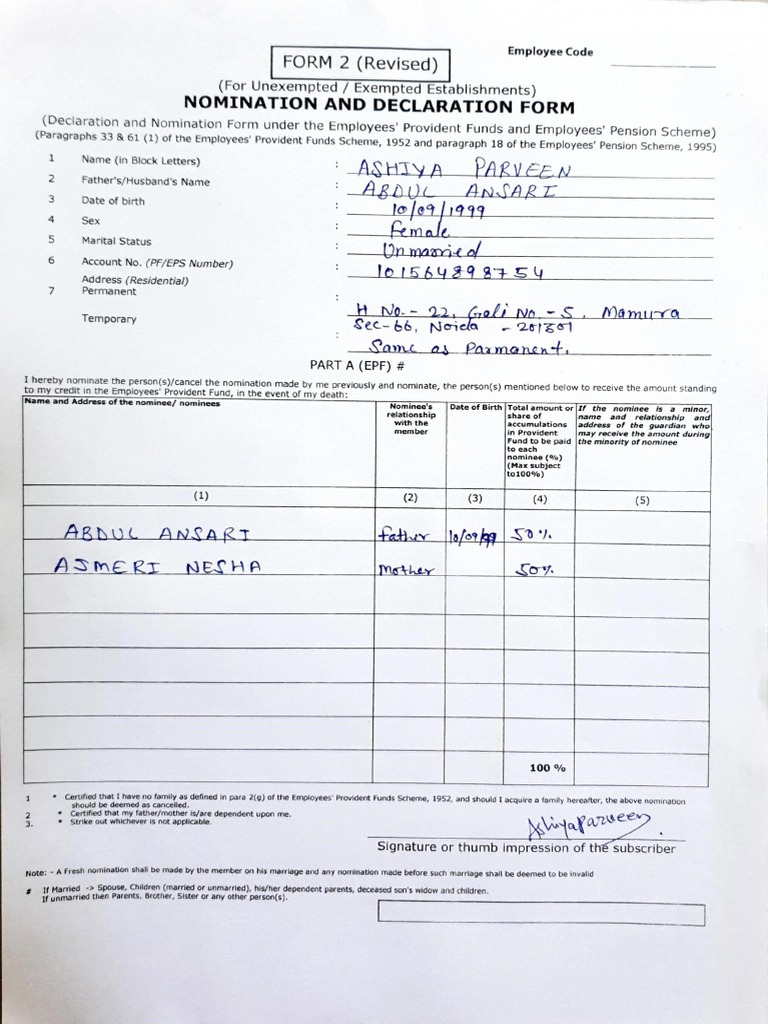 Employee Code
FORM 2 (Revised)
(For Unexempted / Exempted Establishments)
NOMINATION AND DECLARATION FORM
(Declaration and Nomination Form under the Employees' Provident Funds and Employees' Pension Scheme)
(Paragraphs 33 & 61 (1) of the Employees' Provident Funds Scheme, 1952 and paragraph 18 of the Employees' Pension Scheme, 1995)
1 Name (in Block Letters) : ASHIYA PARVEEN
2 Father's/Husband's Name : ABDUL ANSARI
3 Date of birth : 10/09/1999
4 Sex : Female
5 Marital Status : Unmarried
6 Account No. (PF/EPS Number) : 101564898754
Address (Residential)
7 Permanent : H No.- 22, Gali No - 5, Mamura
Sec-66, Noida - 201301
Temporary : Same as Parmanent.
PART A (EPF) #
I hereby nominate the person(s)/cancel the nomination made by me previously and nominate, the person(s) mentioned below to receive the amount standing
to my credit in the Employees' Provident Fund, in the event of my death:
Name and Address of the nominee/ nominees
Nominee's relationship with the member
Date of Birth
Total amount or share of accumulations in Provident Fund to be paid to each nominee (%) (Max subject to100%)
If the nominee is a minor, name and relationship and address of the guardian who may receive the amount during the minority of nominee
(1) (2) (3) (4) (5)
ABDUL ANSARI father 10/09/99 50%
AJMERI NESHA Mother 50%
100 %
1 * Certified that I have no family as defined in para 2(g) of the Employees' Provident Funds Scheme, 1952, and should I acquire a family hereafter, the above nomination
should be deemed as cancelled.
2 * Certified that my father/mother is/are dependent upon me.
3. * Strike out whichever is not applicable.
AshiyaParveen
Signature or thumb impression of the subscriber
Note: - A Fresh nomination shall be made by the member on his marriage and any nomination made before such marriage shall be deemed to be invalid
# If Married -> Spouse, Children (married or unmarried), his/her dependent parents, deceased son's widow and children.
If unmarried then Parents, Brother, Sister or any other person(s).